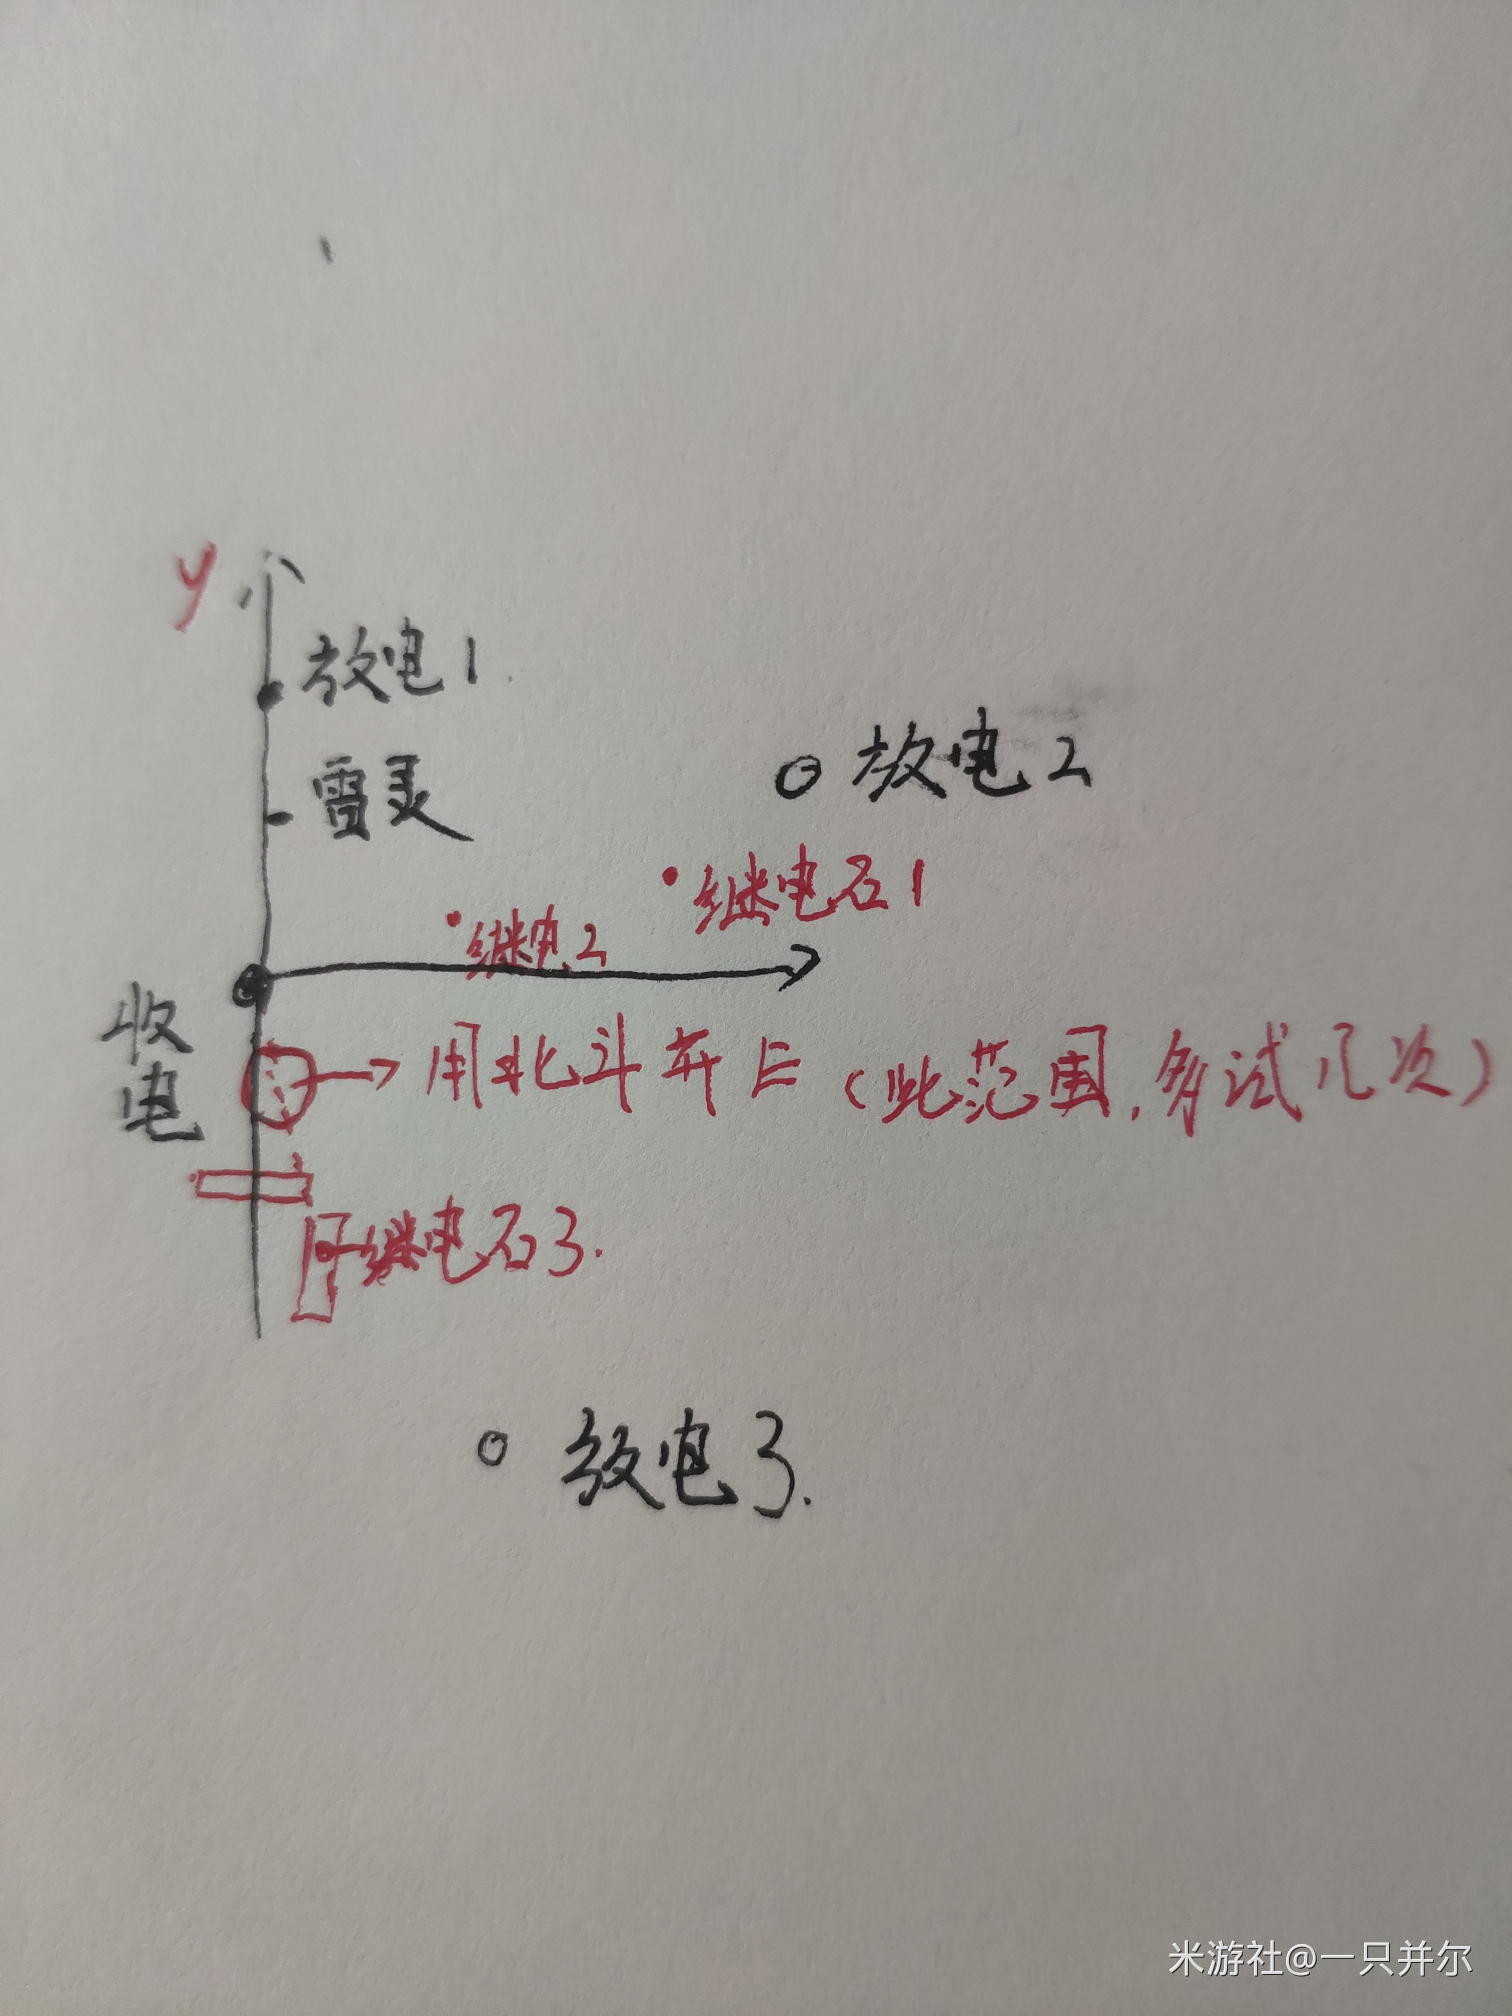 y
放电1.
雷灵
放电2
继电石1
继电2
收电
用北斗开E(此范围,多试几次)
继电石3.
放电3.
米游社@一只并尔